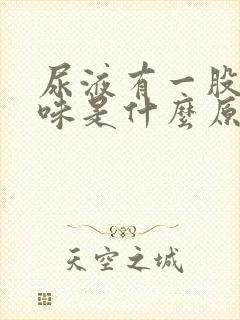 尿液有一股
味是什麼原
天空之城